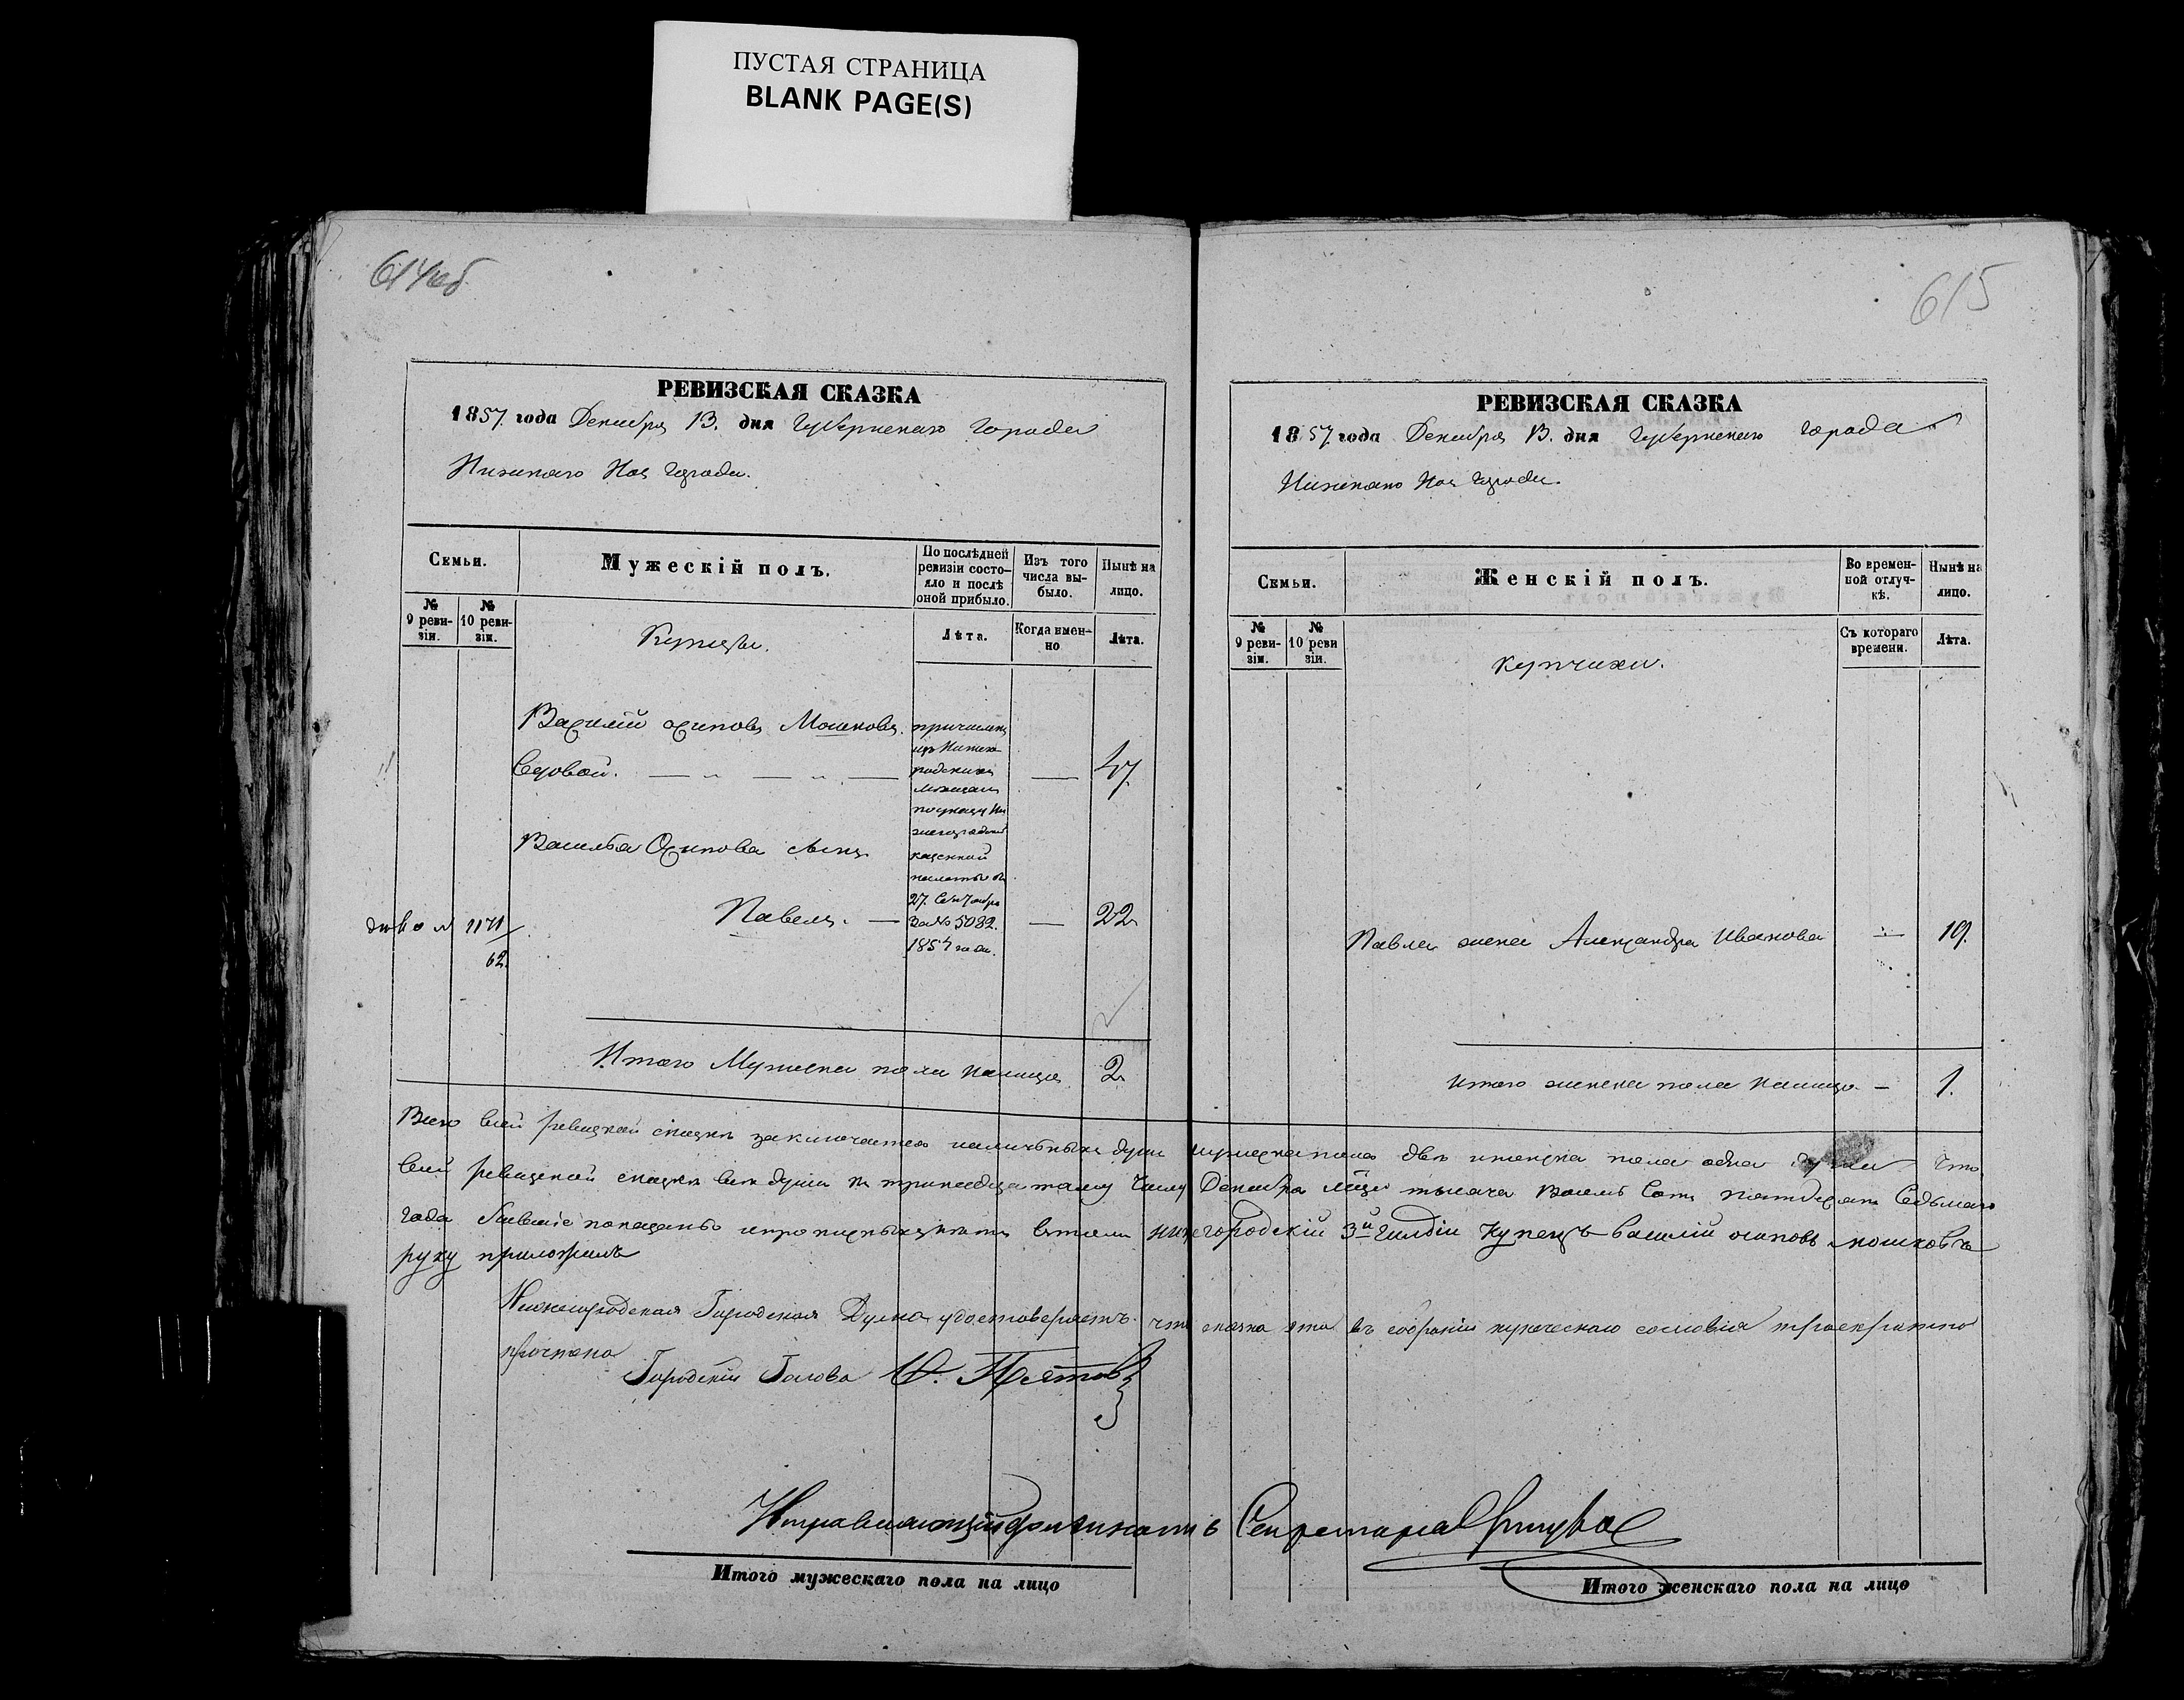 ПУСТАЯ СТРАНИЦА
BLANK PAGE(S)
614об
615
РЕВИЗСКАЯ СКАЗКА
1857. года Декабря 13. дня Губернскаго города
Нижняго Нов Города.
Семьи.
Мужескій полъ.
По послѣдней ревизіи состо-
яло и послѣ
оной прибыло.
Изъ того
числа вы-
было.
Нынѣ на
лицо.
№
9 реви-
зіи.
№
10 реви-
зіи.
Купцы.
Лѣта.
Когда имен-
но
Лѣта.
Василій Осиповъ Мошковъ.
47.
Вдовой.
причисленъ
изъ Нижего-
родскихъ
мѣщанъ
по указу Ни
жегородской
казенной
палаты отъ
27. Сентября
За № 5082.
1857 года.
Василья Осипова сынъ
Павелъ.
22
1171
62.
Итого Мужеска пола налицо
2
РЕВИЗСКАЯ СКАЗКА
1857. года Декабря 13. дня Губернскаго города
Нижняго Нов Города.
Семьи.
Женскій полъ.
Во времен-
ной отлуч-
кѣ.
Нынѣ на
лицо.
№
9 реви-
зіи.
№
10 реви
зіи.
Купчихи.
Съ котораго
времени.
Лѣта.
Павла жена Александра Иванова
19.
итого женска пола налицо
1.
Всего въ сей ревизской сказкѣ заключается наличныхъ душъ мужеска пола двѣ и женска пола одна душа Что
въ сей ревизской сказкѣ всѣ души къ тринадцатому Числу Декабря мѣсяца тысяча восемь сотъ пятдесятъ Седьмаго
года бывшіе показаны и прописныхъ нѣтъ въ томъ нижегородскій 3й гилдіи купецъ василій осиповъ мошковъ
руку приложилъ
Нижегородская Городская Дума удостоверяетъ что сказка эта въ собраніи купеческаго сословія троекратно
прочтена
Городской Голова
Исправляющій должность Секретаря
Итого мужескаго пола на лицо
Итого женскаго пола на лицо